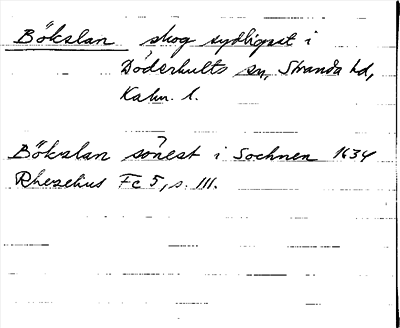 Bökslan skog sydligast i
Döderhults sn, Stranda hd,
Kalm. l.
?
Bökslan sönest i Sochnen 1634
Rhezelius Fc 5, s. 111.